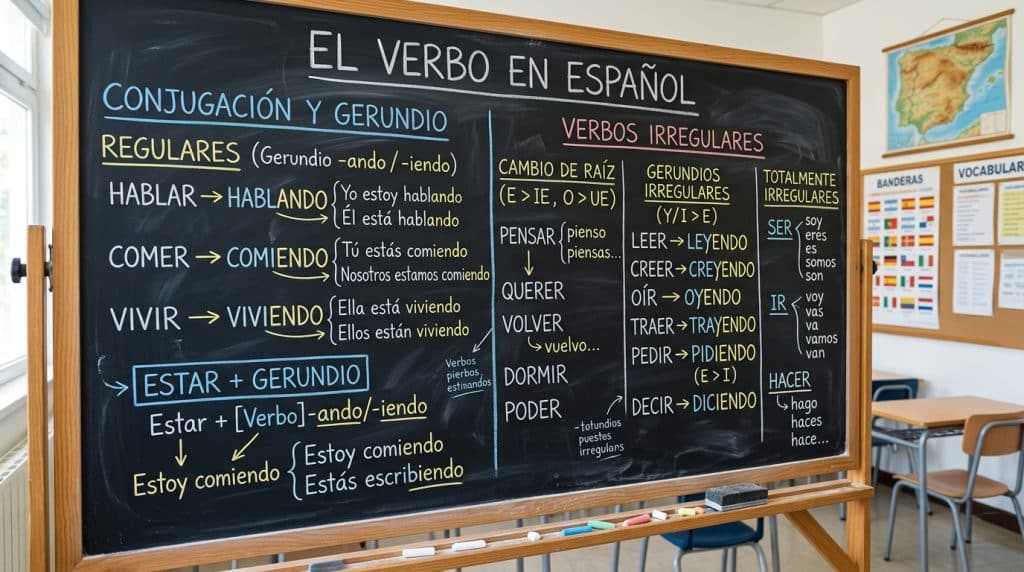 EL VERBO EN ESPAÑOL
CONJUGACIÓN Y GERUNDIO
REGULARES (Gerundio -ando / -iendo)
HABLAR → HABLANDO { Yo estoy hablando
Él está hablando
COMER → COMIENDO { Tú estás comiendo
Nosotros estamos comiendo
VIVIR → VIVIENDO { Ella está viviendo
Ellos están viviendo
ESTAR + GERUNDIO
Estar + [Verbo]-ando/-iendo
Estoy comiendo { Estoy comiendo
Estás escribiendo
Verbos
pierbos
estinandos
VERBOS IRREGULARES
CAMBIO DE RAÍZ
(E > IE, O > UE)
PENSAR { pienso
piensas...
QUERER
VOLVER
vuelvo...
DORMIR
PODER
GERUNDIOS
IRREGULARES
(Y/I > E)
LEER → LEYENDO
CREER → CREYENDO
OÍR → OYENDO
TRAER → TRAYENDO
PEDIR → PIDIENDO
(E > I)
DECIR → DICIENDO
-totundios
puestes
irregulans
TOTALMENTE
IRREGULARES
SER { soy
eres
es
somos
son
IR { voy
vas
va
vamos
van
HACER
hago
haces
hace...
BANDERAS
VOCABULAR